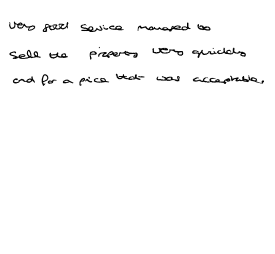 Very good service managed to
sell the property very quickly
and for a price that was acceptable.